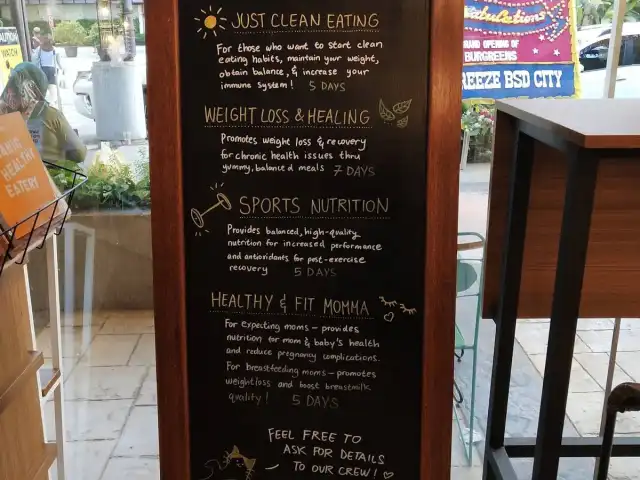 JUST CLEAN EATING
For those who want to start clean
eating habits, maintain your weight,
obtain balance, & increase your
immune system! 5 DAYS
WEIGHT LOSS & HEALING
Promotes weight loss & recovery
for chronic health issues thru
yummy, balanced meals 7 DAYS
SPORTS NUTRITION
Provides balanced, high-quality
nutrition for increased performance
and antioxidants for post-exercise
recovery 5 DAYS
HEALTHY & FIT MOMMA
For expecting moms – provides
nutrition for mom & baby's health
and reduce pregnancy complications.
For breastfeeding moms – promotes
weightloss and boost breastmilk
quality! 5 DAYS
FEEL FREE TO
ASK FOR DETAILS
TO OUR CREW!
HEALTHY
EATERY
OPENING OF
BURGREENS
BREEZE BSD CITY